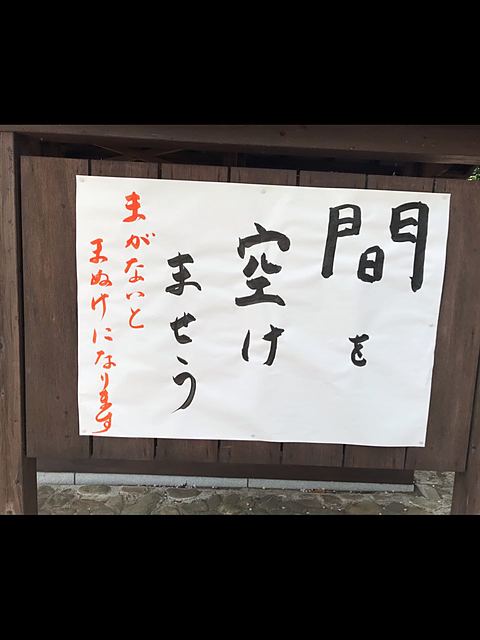 間を
空け
ませう
まがないと
まぬけになります